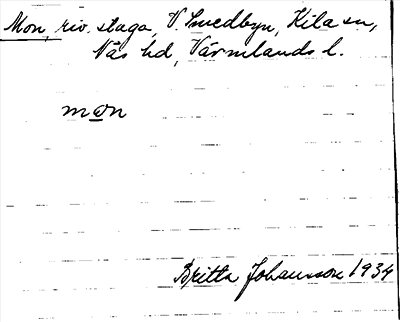 Mon, riv. stuga, V. Smedbyn, Kila sn,
Näs hd, Värmlands l.
mɷn
Britta Johansson 1934